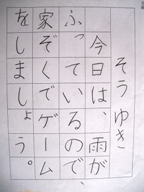 そう ゆき
今日は、雨が
ふっているので、
家ぞくでゲーム
をしましょう。